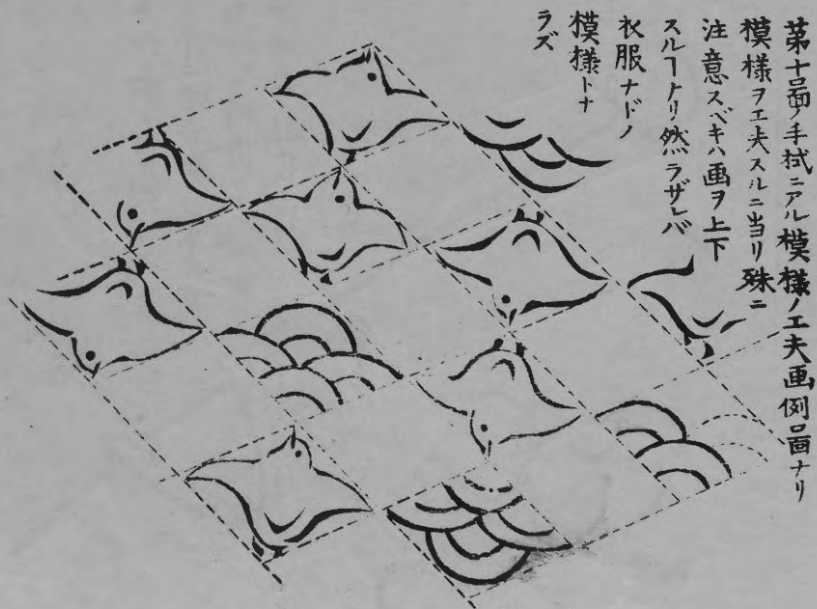 第十圖ノ手拭ニアル模様ノ工夫画例圖ナリ
模様ヲ工夫スルニ当リ殊ニ
注意スベキハ画ヲ上下
スルヿナリ然ラザレバ
衣服ナドノ
模様トナ
ラズ